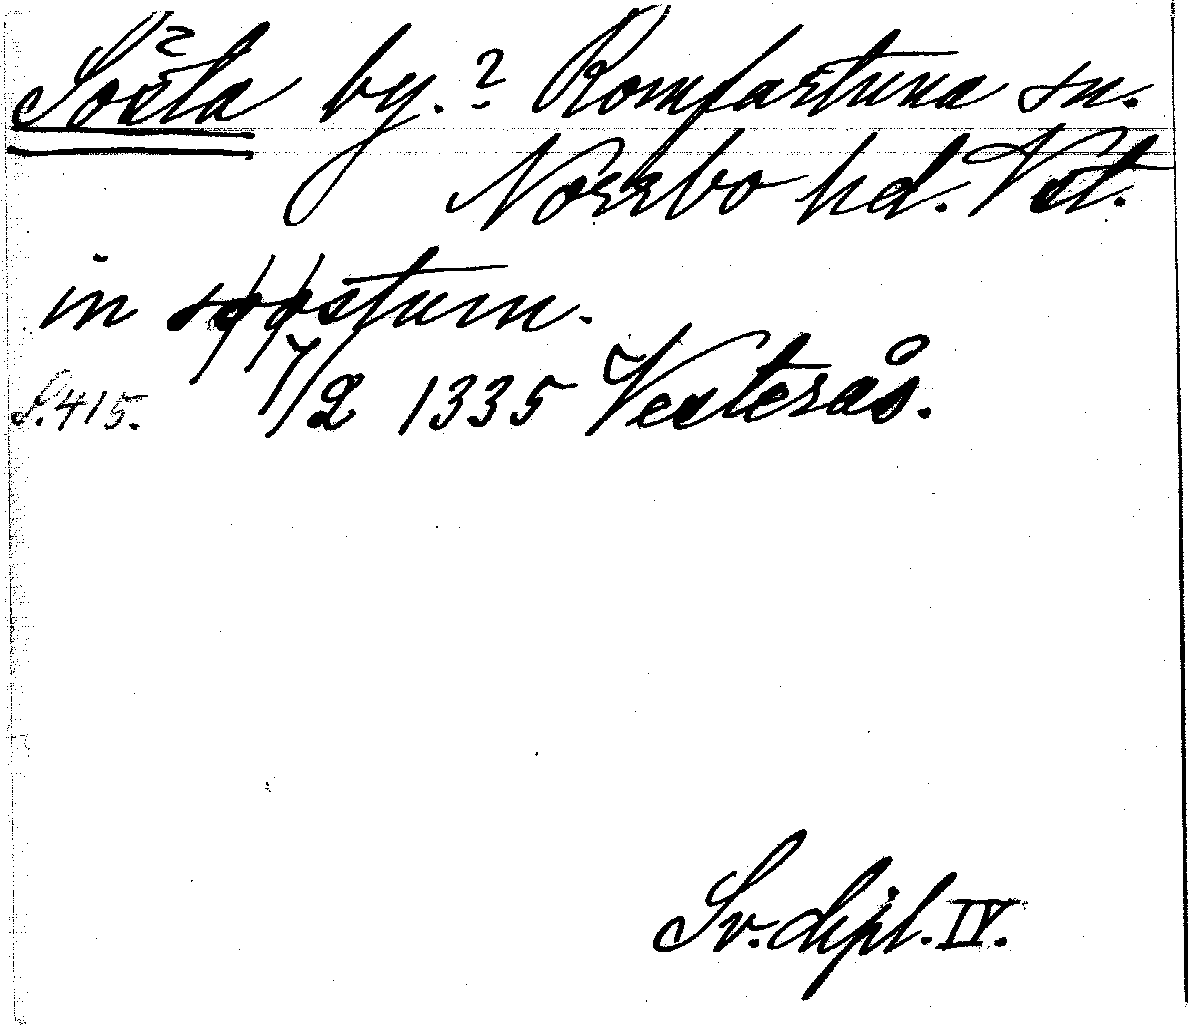 Sörsta by.? Romfartuna sn.
Norrbo hd. Vst.
in søøstum.
S. 415. 7/2 1335 Vesterås.
Sv. dipl. IV.